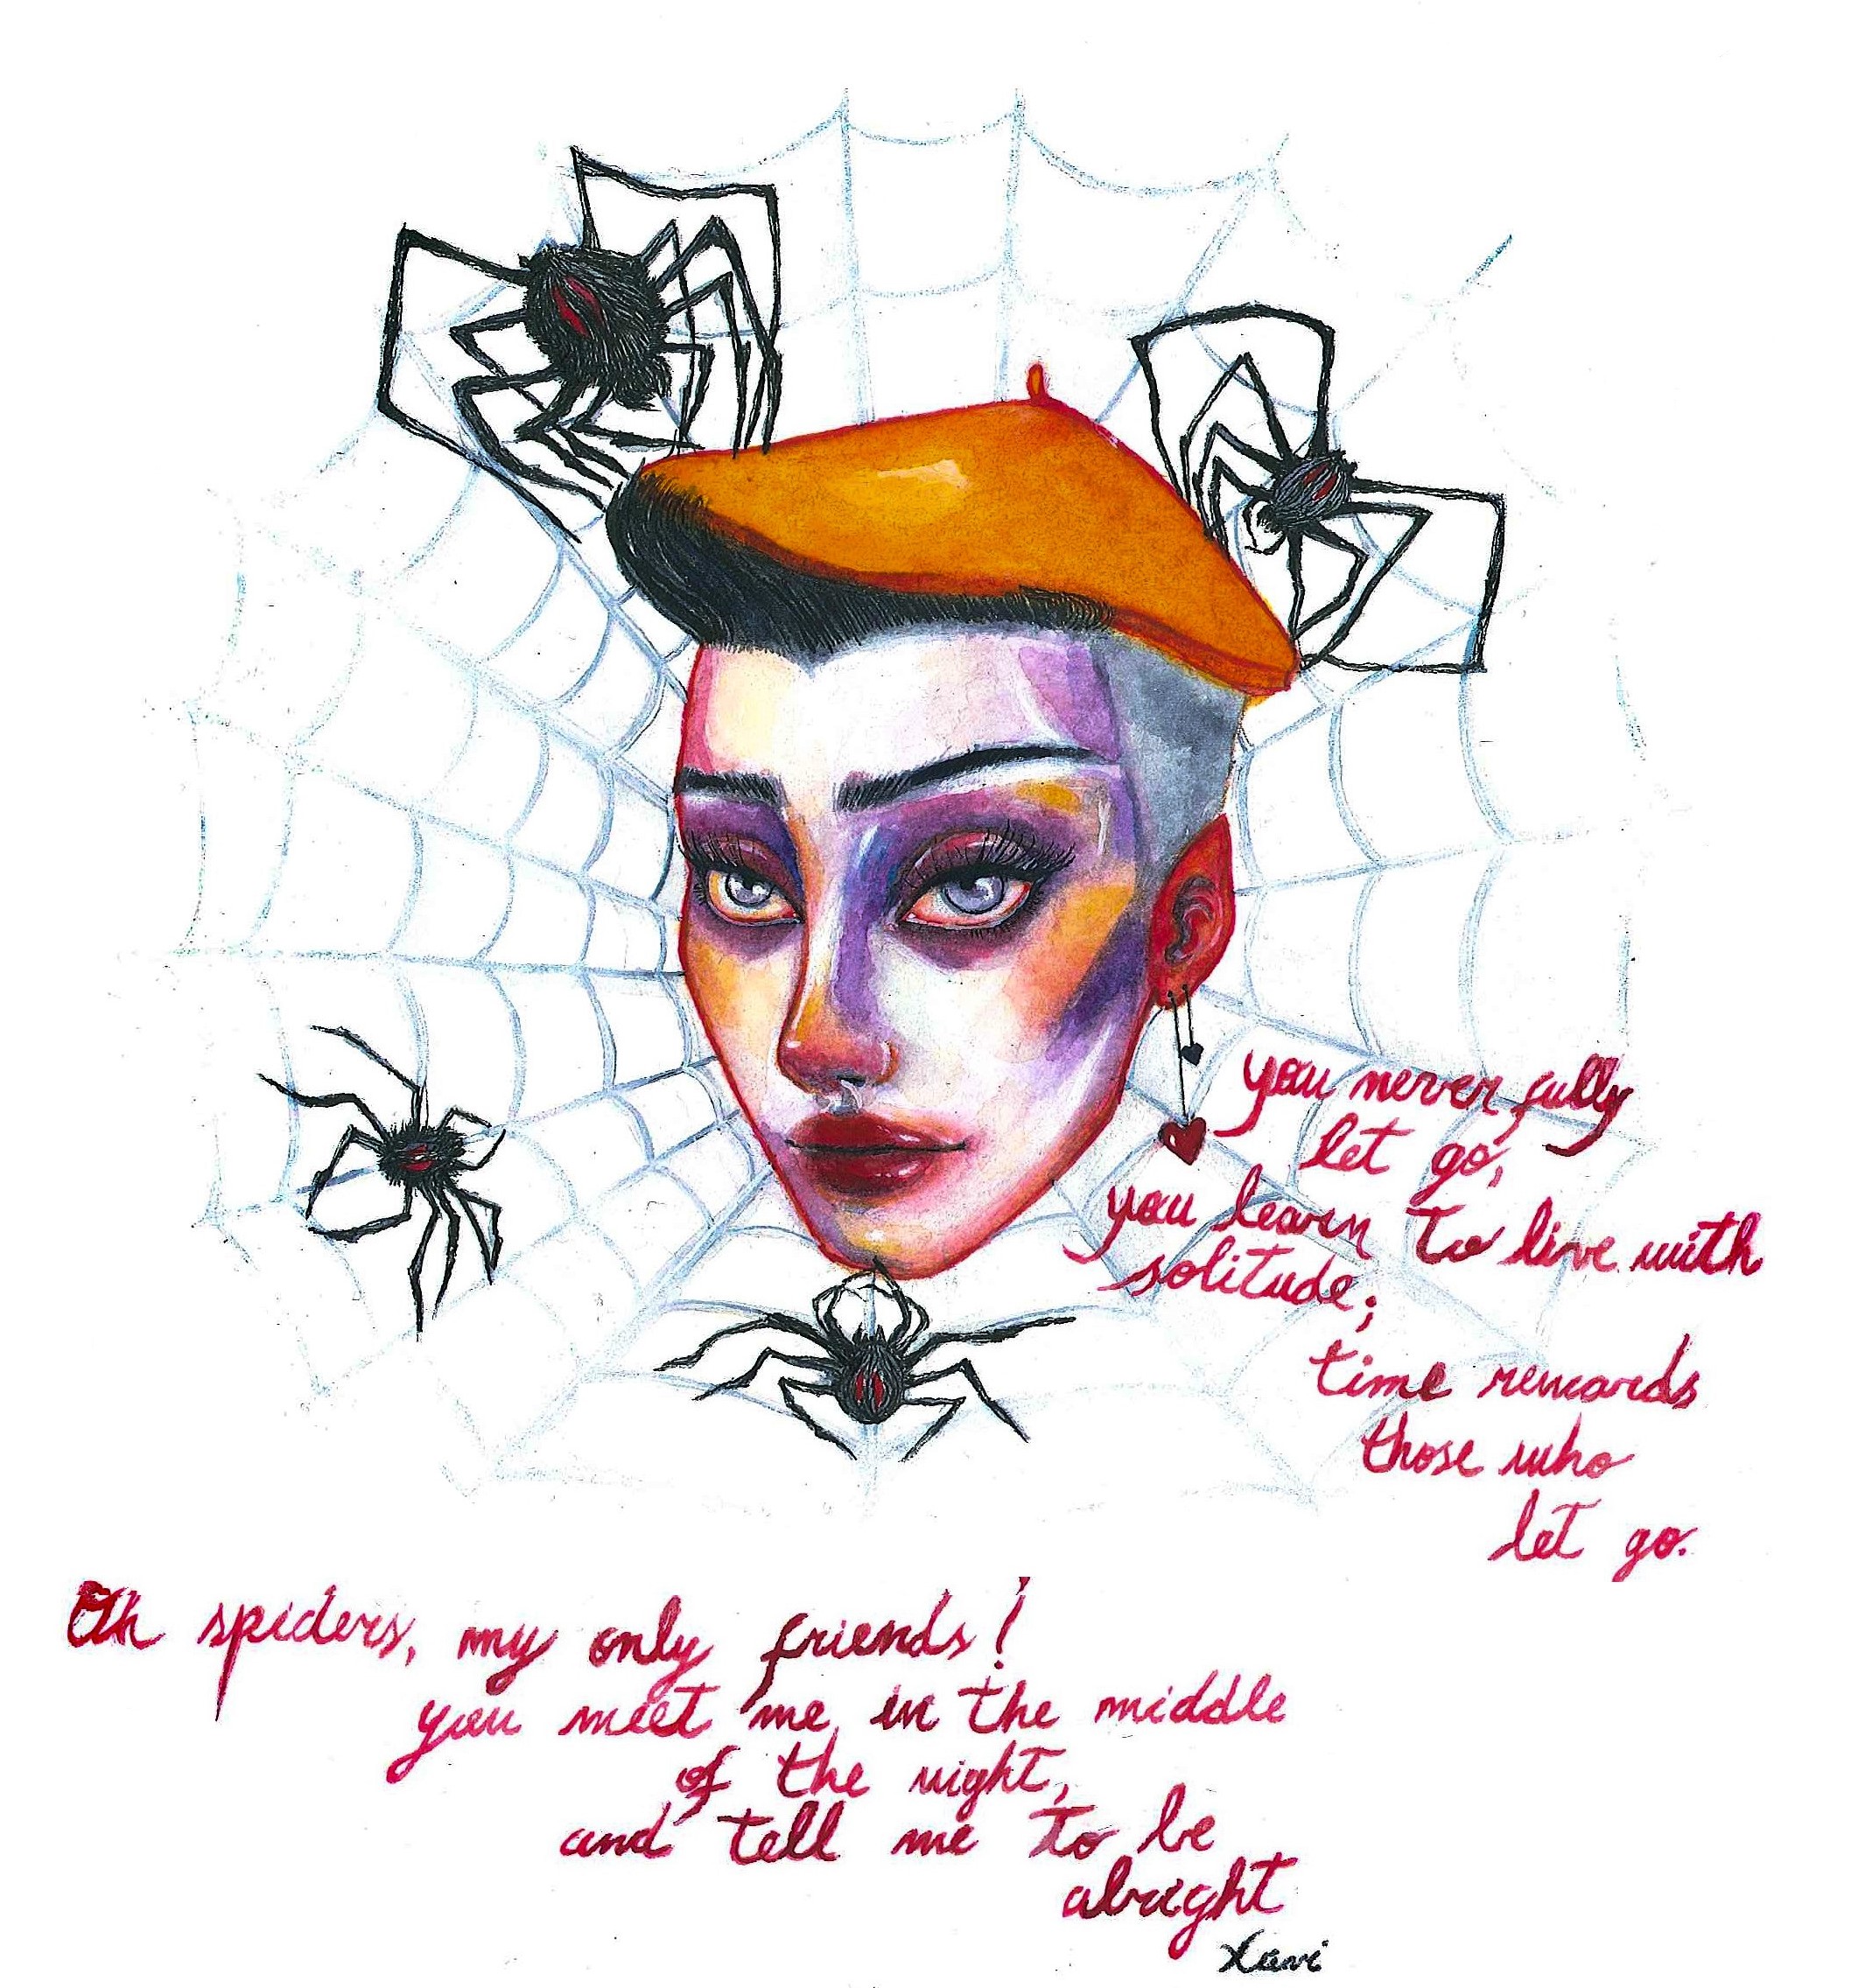 you never fully
let go,
you learn to live with
solitude;
time rewards
those who
let go.
Oh spiders, my only friends!
you meet me in the middle
of the night,
and tell me to be
alright
Xavi